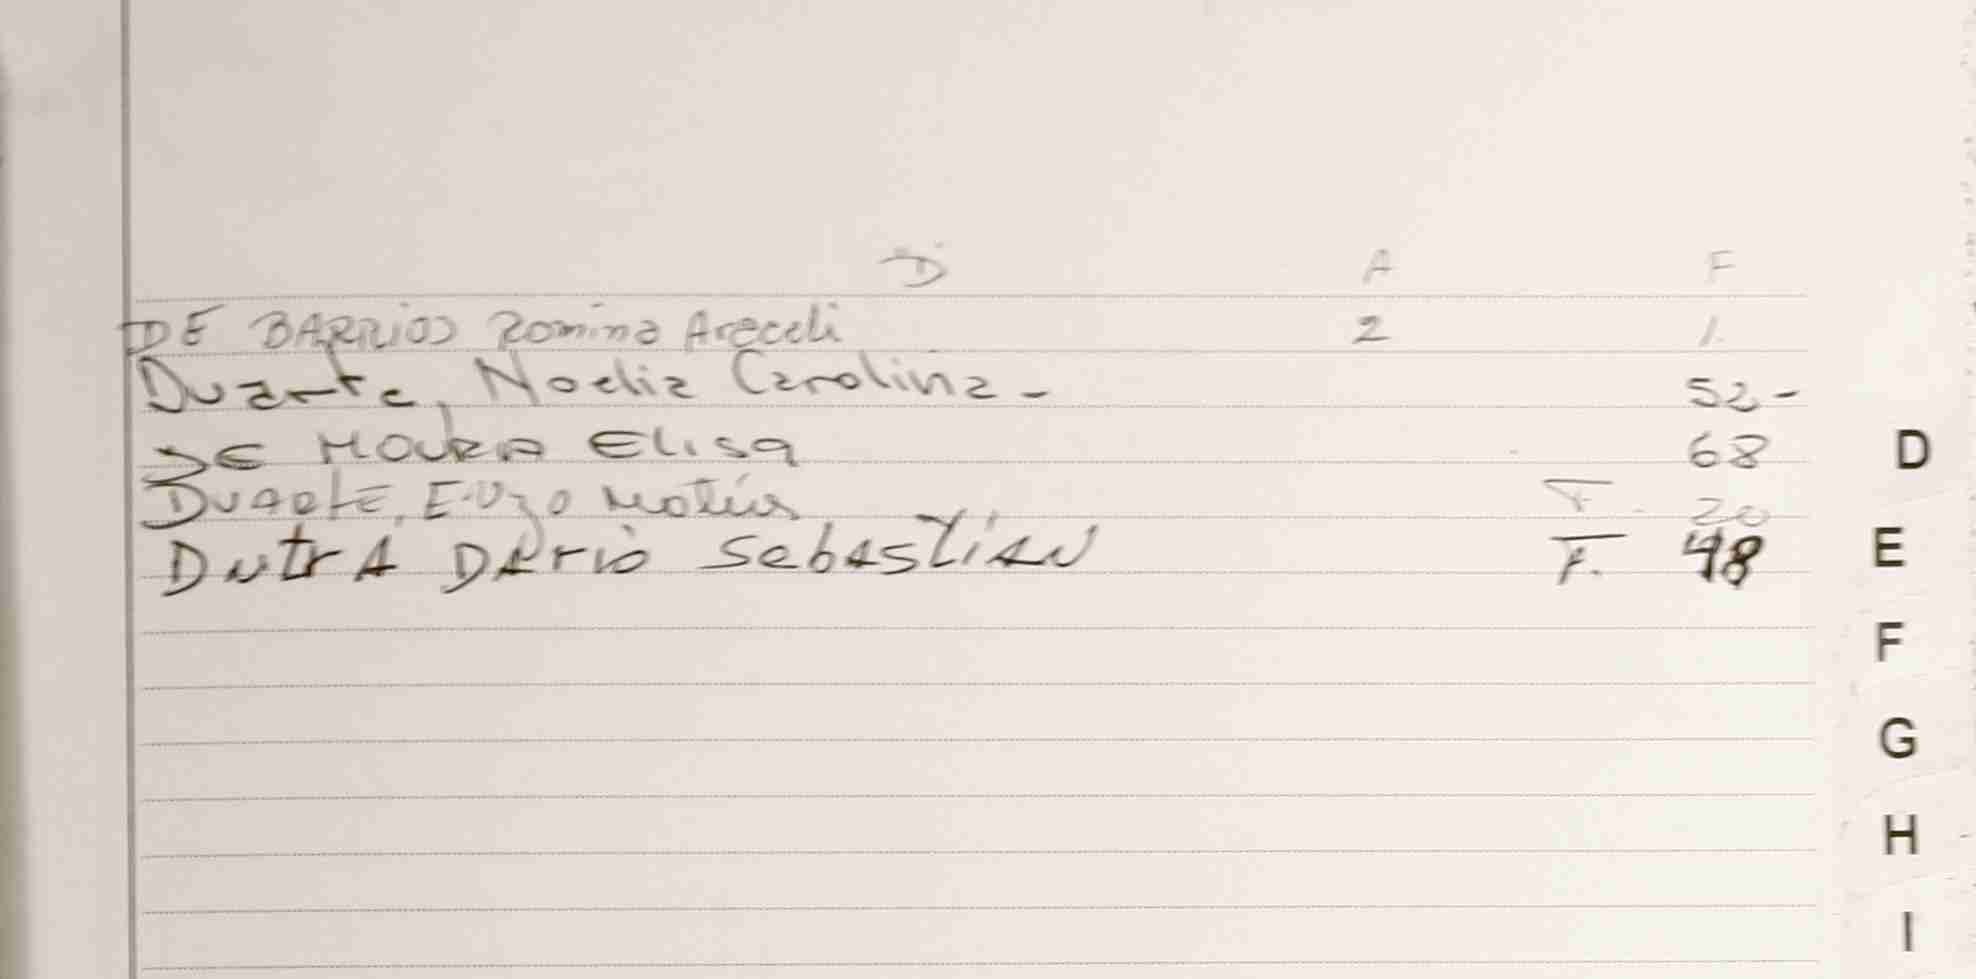 D A F
DE BARRIOS Romina Araceli 2 1.
Duarte, Noelia Carolina - 52-
DE MOURA Elisa 68 D
Duarte, Enzo Matías F. 20
DutrA DArio SebAstiAN F. 48 E
F
G
H
I